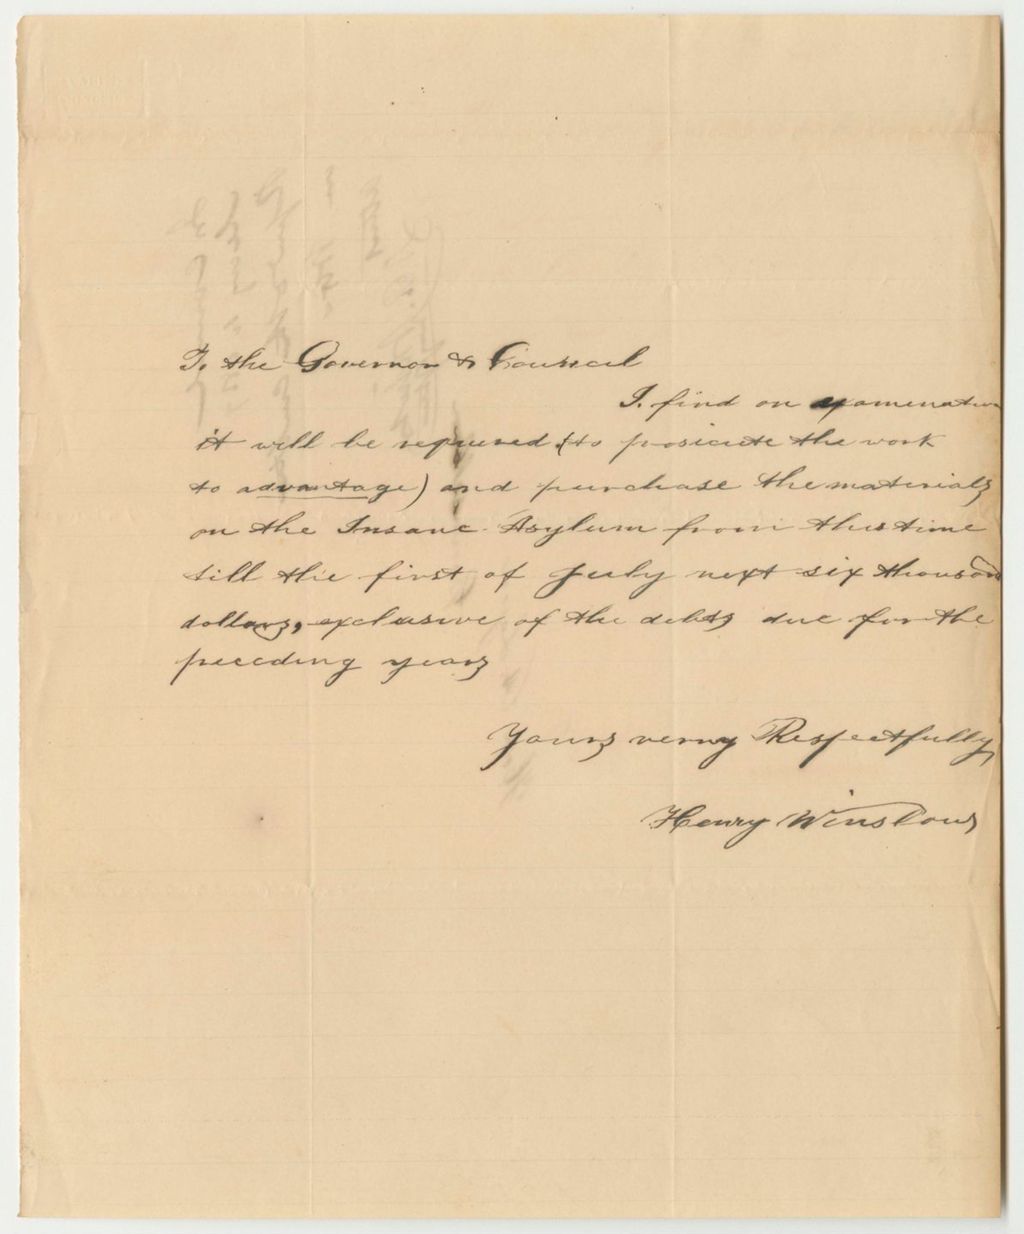 To the Governor & Counscel
I. find on examenation
it will be requiered (to prosicute the work
to advantage) and purchase the materials
on the Insane Asylum from this time
till the first of July next six thousand
dollars, exclusive of the debts due for the
preceding years
Yours verry Respectfully,
Henry Winslow